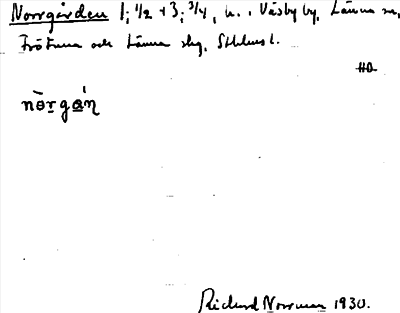 Norrgården 1; 1/2 + 3; 3/4, h. i Väsby by, Länna sn,
Frötuna och Länna skg, Sthlms l.
HD
Richard Norrman 1930.